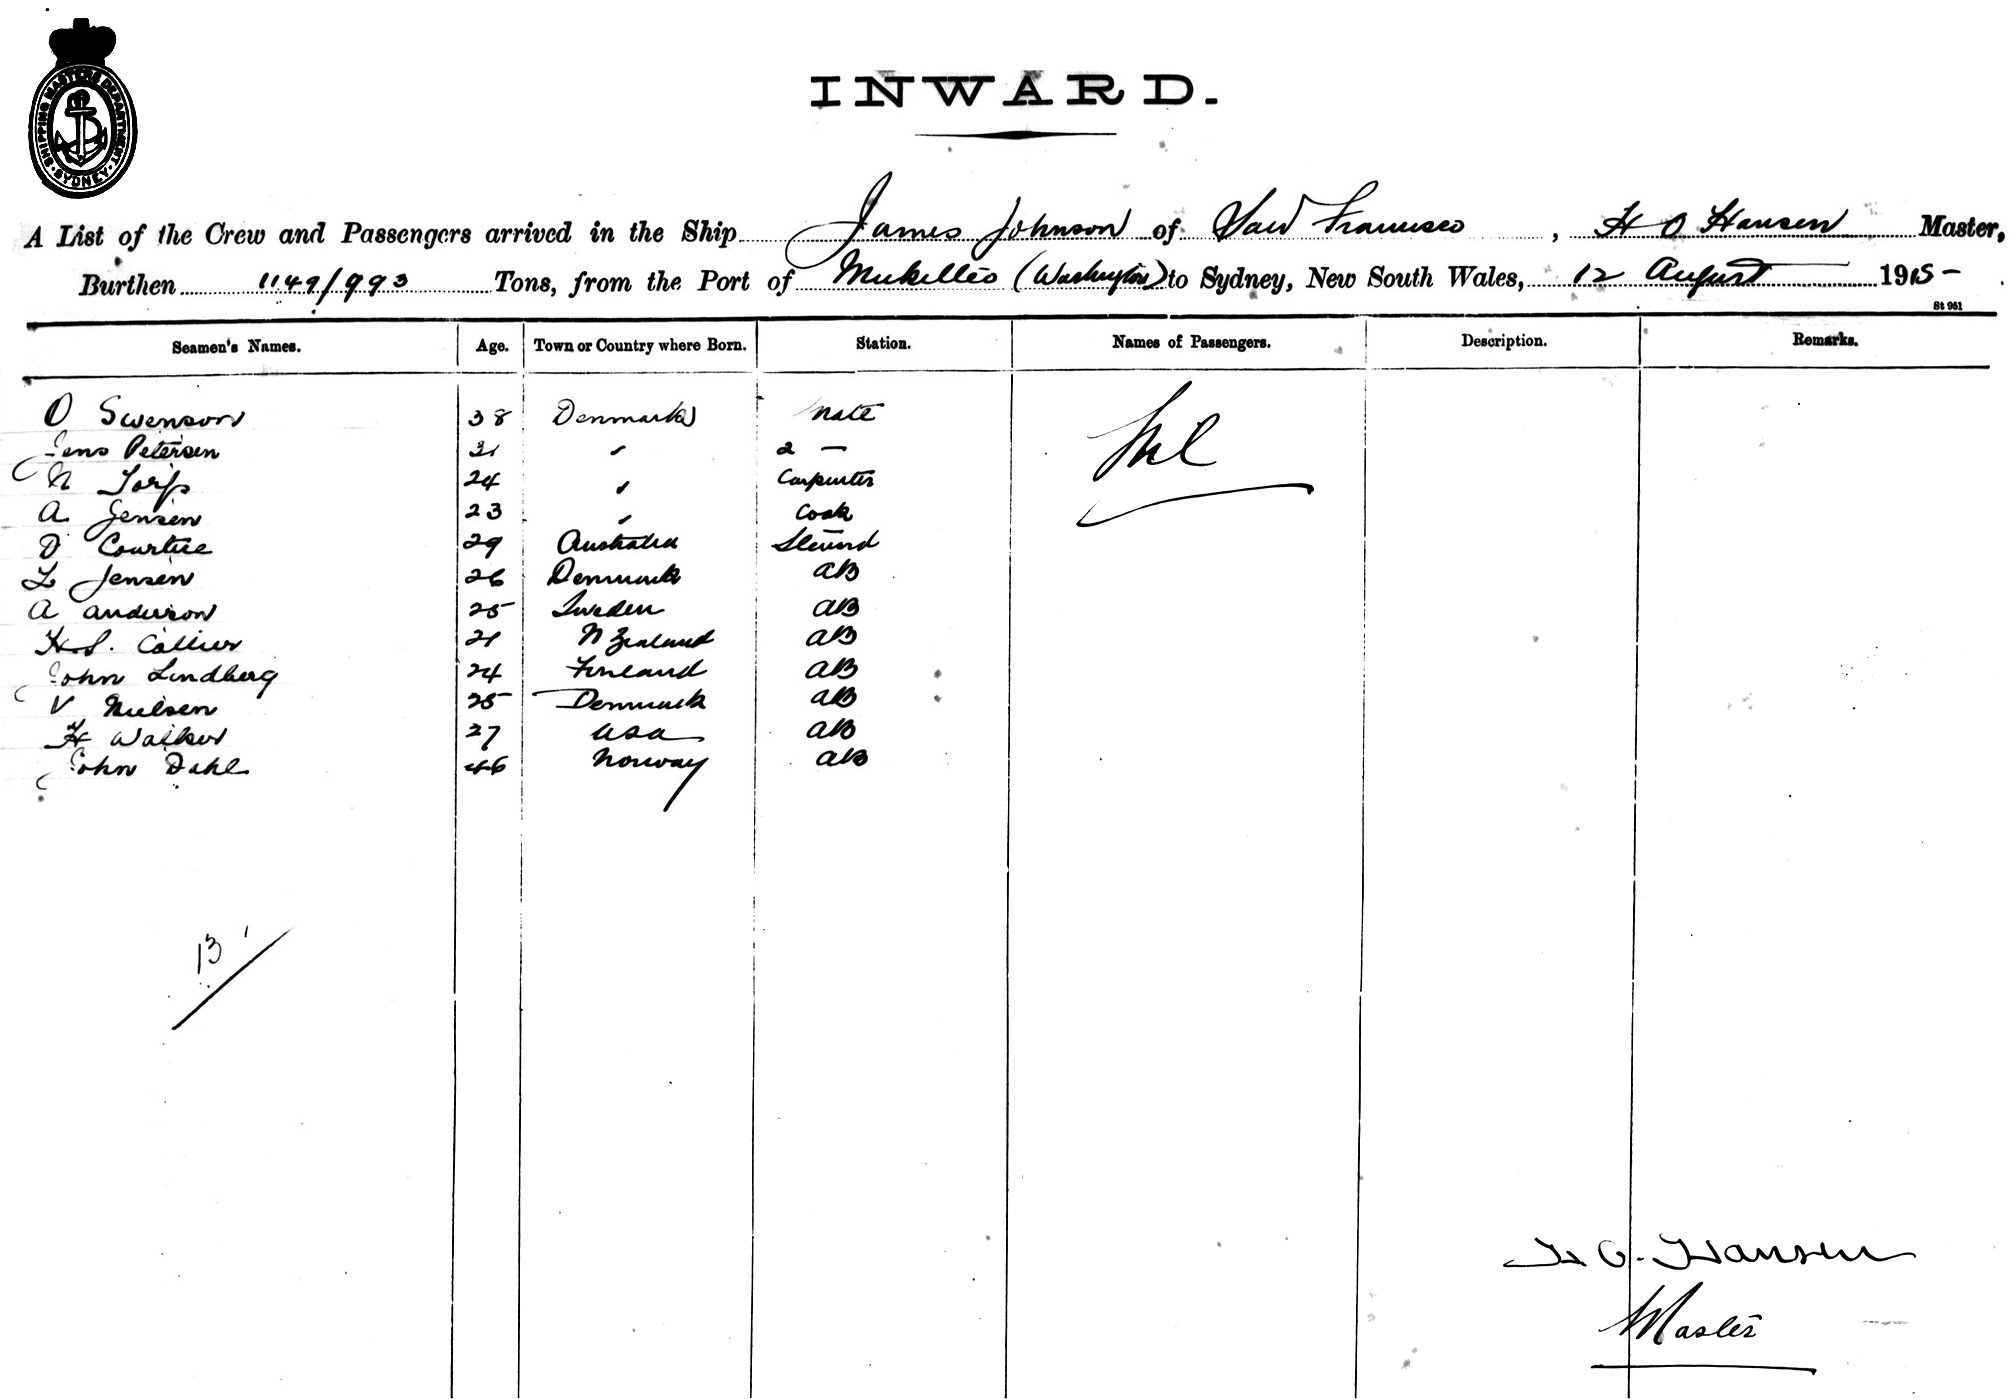 SHIPPING MASTERS DEPARTMENT
SYDNEY
INWARD.
A List of the Crew and Passengers arrived in the Ship James Johnson of San Francisco, H O Hansen Master,
Burthen 1149/993 Tons, from the Port of Mukilteo (Washington) to Sydney, New South Wales, 12 August 1915
St 951
Seamen's Names. Age. Town or Country where Born. Station. Names of Passengers. Description. Remarks.
O Swenson 38 Denmark Mate Nil
Jens Petersen 31 " 2 —
N Torp 24 " Carpenter
A Jensen 23 " Cook
D 29 Australia Steward
L Jensen 26 Denmark AB
A Anderson 25 Sweden AB
H.S. Collier 21 N Zealand AB
John Lindberg 24 Finland AB
V Nielsen 25 Denmark AB
H Walker 27 USA AB
John Dahl 46 Norway AB
13
H O. Hansen
Master